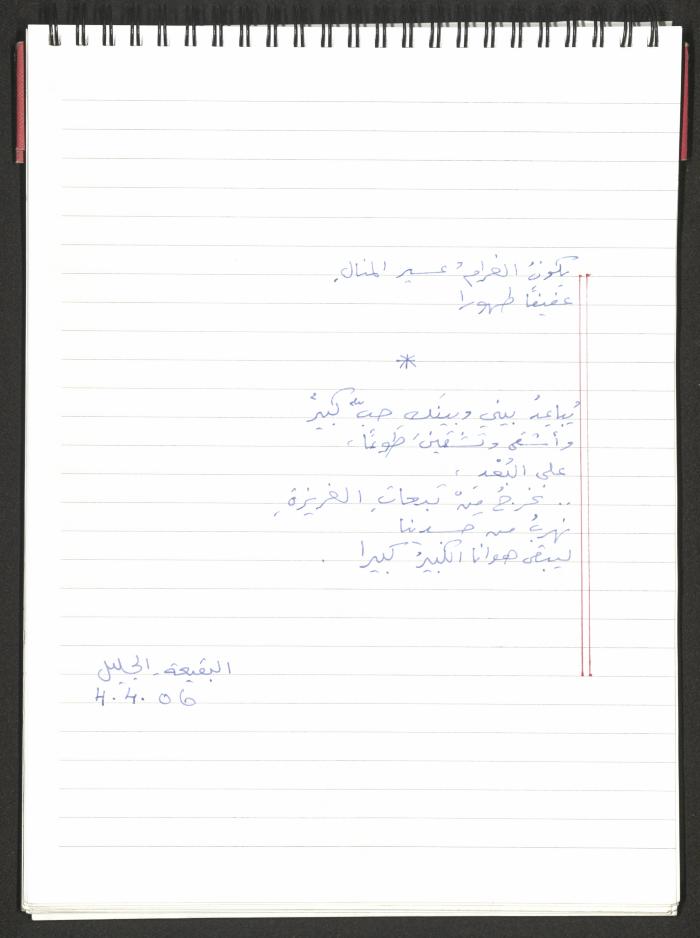 يكونُ الغرامُ عسير المنالِ
عفيفًا طهورا
*
يُباعِدُ بيني وبينَك حبٌّ كبيرٌ
وأشقى وتَشْقَيْنَ طَوعًا،
على البُعْد ،
.. نخرجُ مِنْ تبعاتِ الغريزةِ
نهربُ من جسدينا
ليبقى هوانا الكبيرُ كبيرا .
البقيعة - الجليل
4.4.06